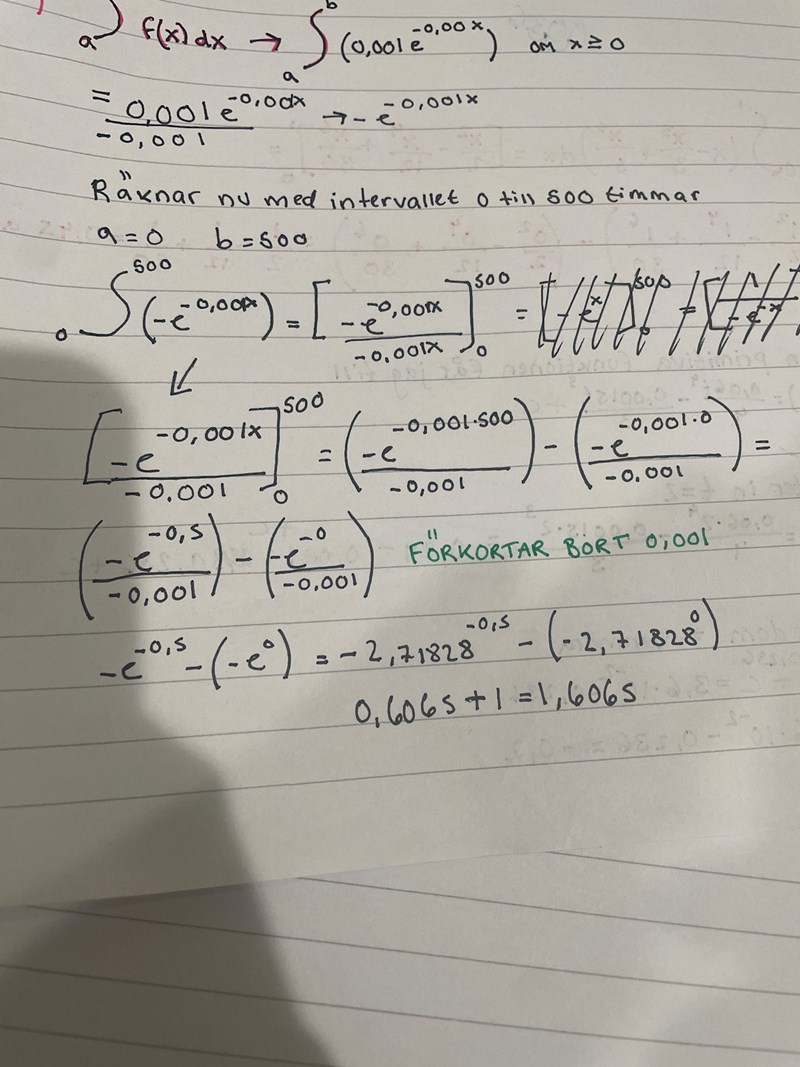 ∫ₐᵇ f(x) dx → ∫ₐᵇ (0,001 e^(-0,00x)) om x ≥ 0
= 0,001 e^(-0,001x) / -0,001 → - e^(-0,001x)
Räknar nu med intervallet 0 till 500 timmar
a = 0 b = 500
∫₀⁵⁰⁰ (-e^(-0,001x)) = [-e^(-0,001x) / -0,001x]₀⁵⁰⁰ =
↙
[-e^(-0,001x) / -0.001]₀⁵⁰⁰ = (-e^(-0,001·500) / -0,001) - (-e^(-0,001·0) / -0.001) =
(-e^(-0,5) / -0,001) - (-e^(-0) / -0,001) FÖRKORTAR BORT 0,001
-e^(-0,5) - (-e^0) = -2,71828^(-0,5) - (-2,71828^0)
0,6065 + 1 = 1,6065